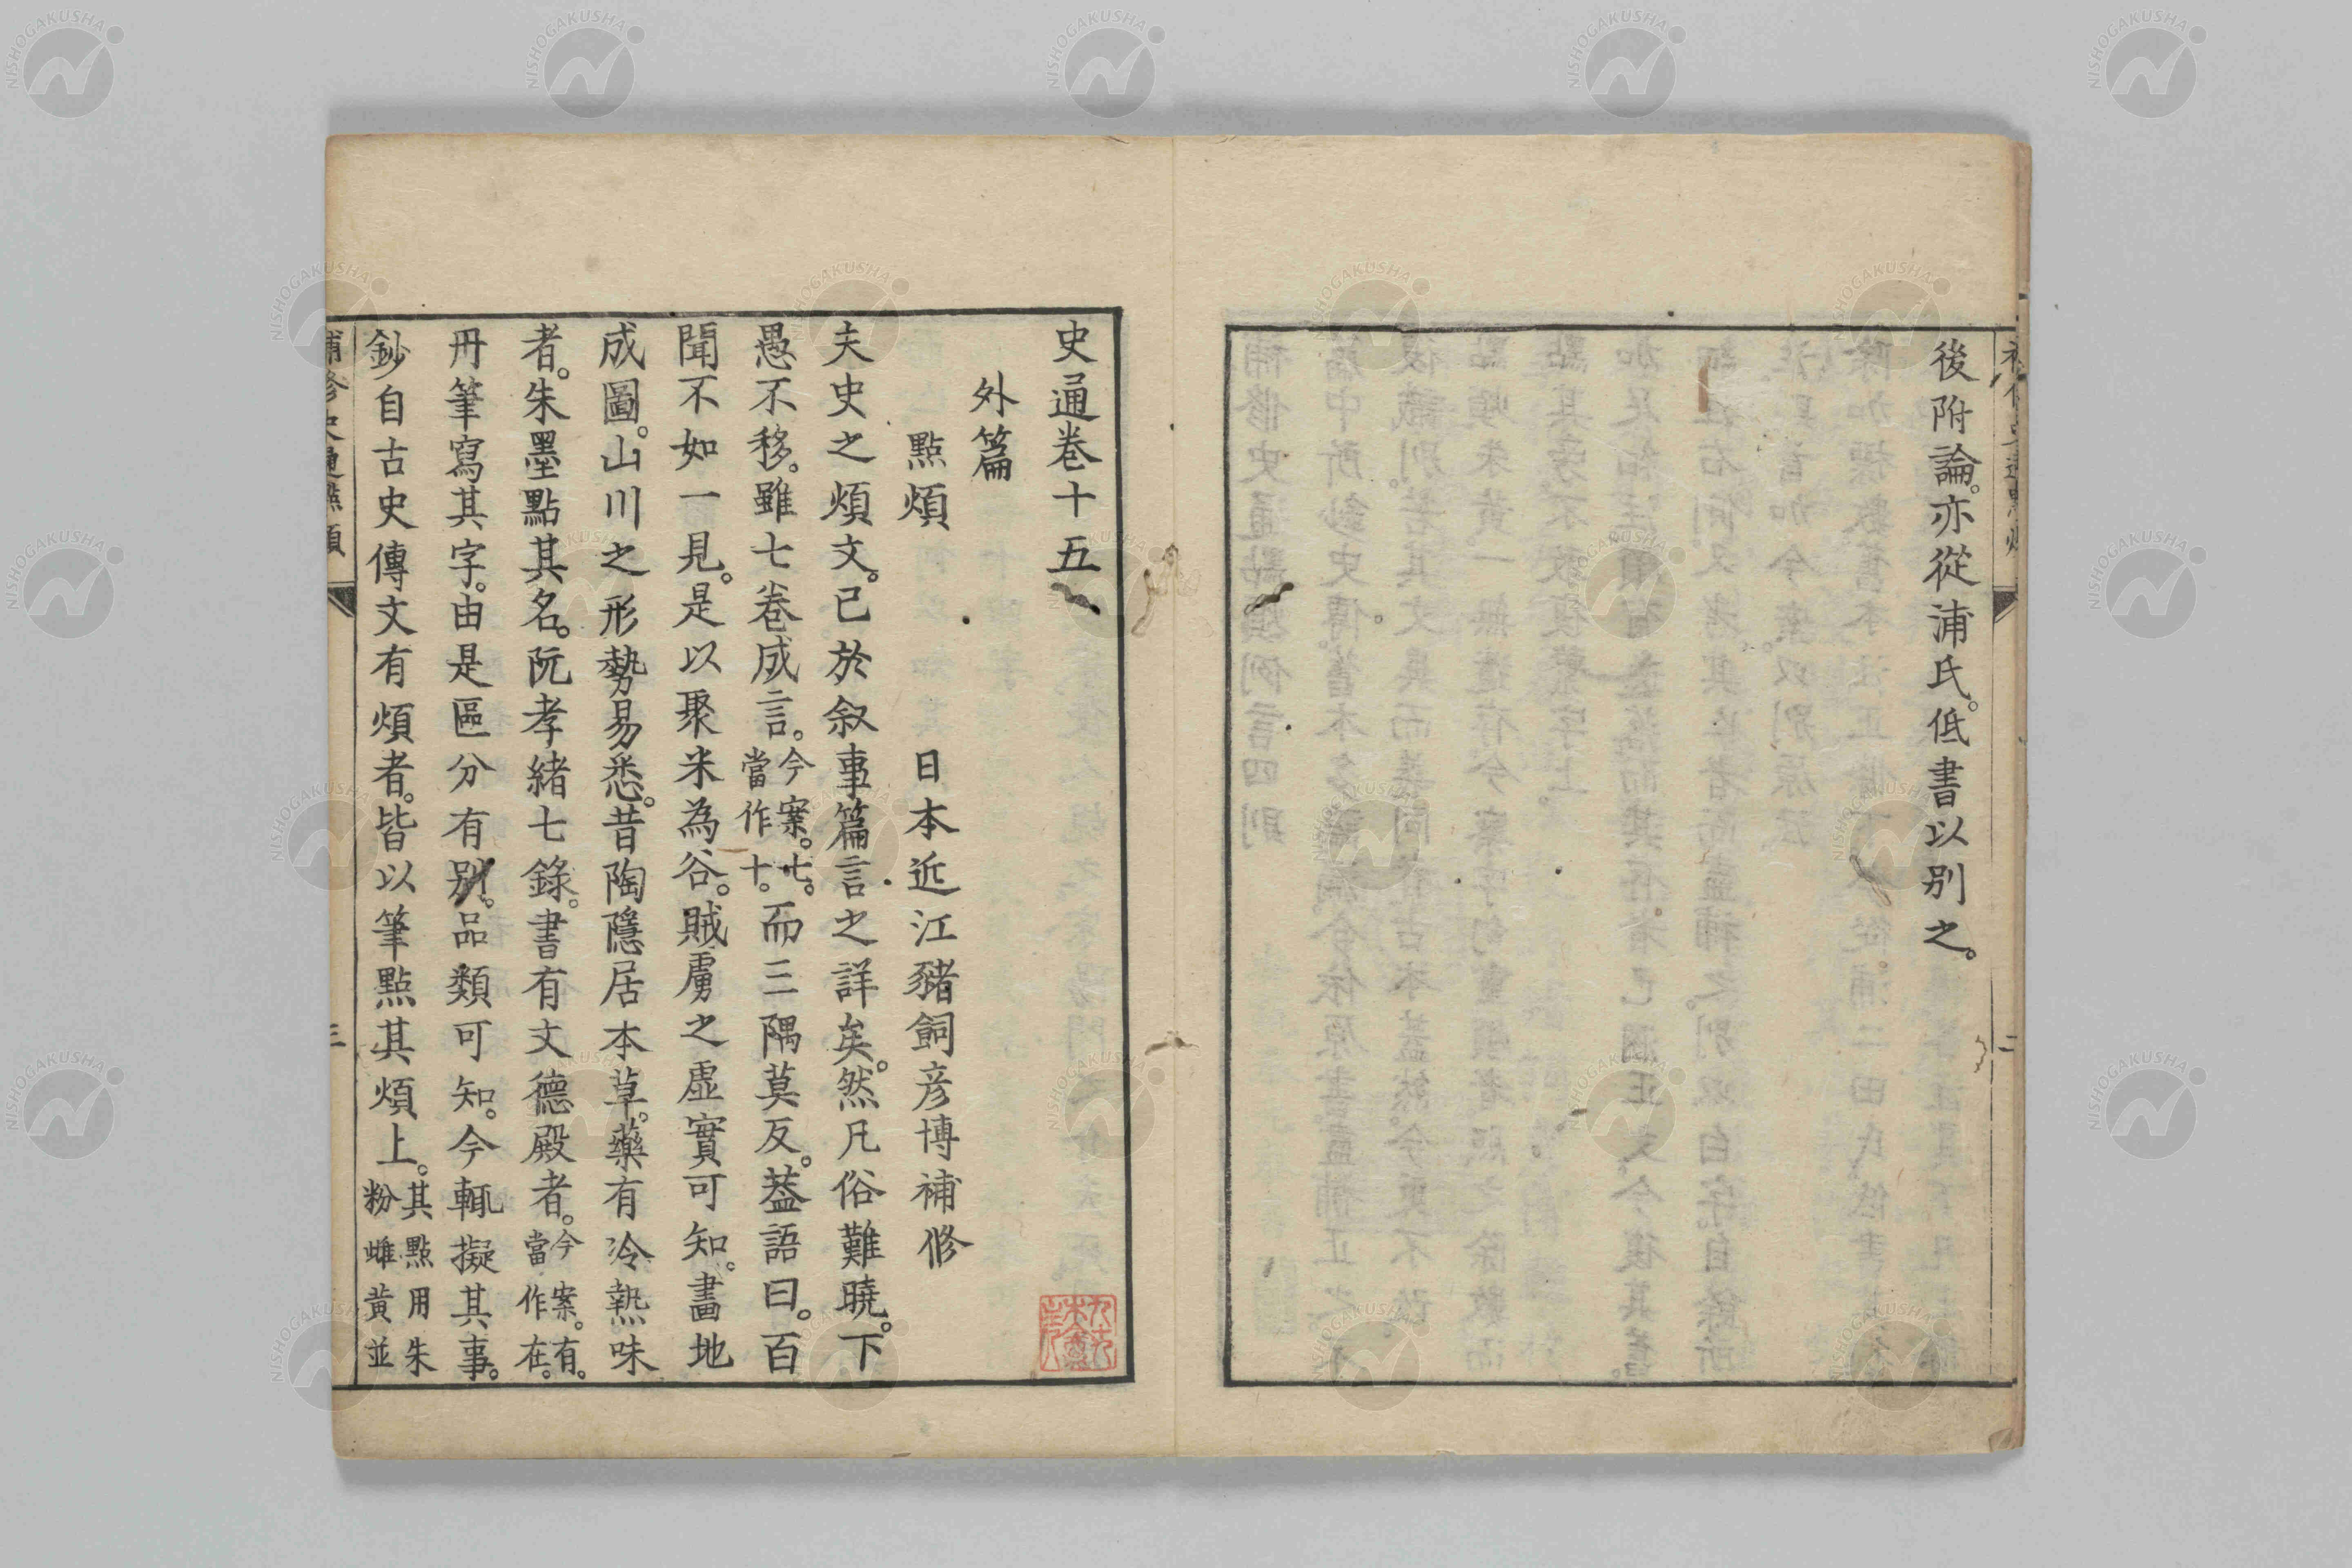 後附論。亦從浦氏。低書以別之。
二
史通卷十五
外篇
點煩
日本近江豬飼彥博補修
夫史之煩文。已於叙事篇言之詳矣。然凡俗難曉。下
愚不移。雖七卷成言。今案。七。當作十。而三隅莫反。葢語曰。百
聞不如一見。是以聚米為谷。賊虜之虛實可知。畫地
成圖。山川之形勢易悉。昔陶隱居本草。藥有冷熱味
者。朱墨點其名。阮孝緒七錄。書有文德殿者。今案。有。當作在。
丹筆寫其字。由是區分有別。品類可知。今輒擬其事。
鈔自古史傳文有煩者。皆以筆點其煩上。其點用朱粉雌黃並
補修史通點煩
三
NISHOGAKUSHA